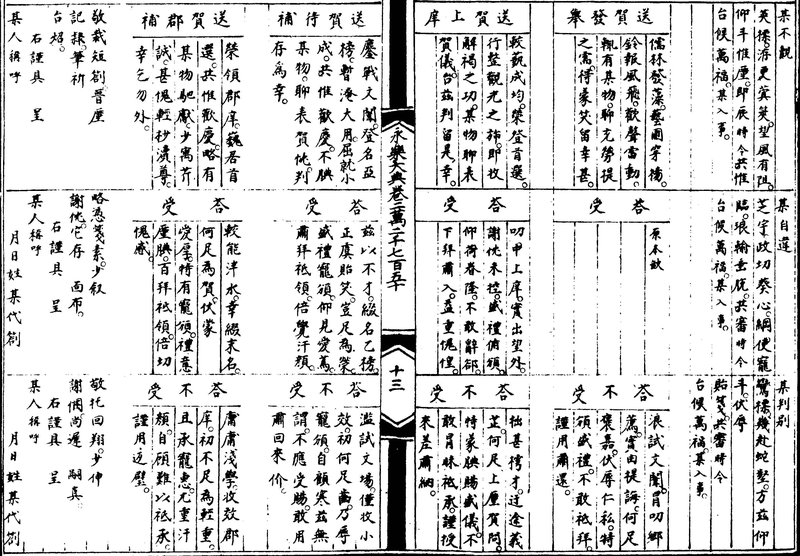 某不覿
英標浒更蓂莢望風有阻
仰斗惟厪即辰時今共惟
台候萬福某入事
送賀發舉
儒林發藻藝圃穿楊
鈴報風飛歡聲雷動
輒有某物聊充勞提
之需得蒙笑留幸甚
送賀上庠
較藝成均榮登首選
行整觀光之旆即收
解褐之功某物聊表
賀儀台兹判留是幸
某自違
芝宇政切葵心網使寵
臨琅翰垂貺共審時今
台候萬福某入事
答受
原本缺
答受
叨甲上庠實出望外
謝忱未控盛禮俯頒
仰荷眷隆不敢辭卻
下拜肅入益重愧惶
某判别
鷺標幾赴蛇墊方茲仰
斗伏辱
貽箋共審時今
台候萬福某入事
答不受
浪試文闈冒叨鄉
薦實由提誨何足
褒嘉伏辱仁私特
頒盛禮不敢祗拜
謹用肅還
答不受
拙甚樗才义
芷何足上厪賀問
特蒙腆賜盛儀不
敢冒昧祗承謹授
來差肅納
永樂大典卷二萬二千七百五十
十三
送賀待補
鏖戰文闈登名亞
榜暫淹大用屈就小
成共惟歡慶不腆
某物聊表賀忱判
存為幸
送賀郡補
榮領郡庠巍居首
選共惟歡慶略有
某物馳獻少寓芹
誠甚愧輕秒瀆尊
幸乞勿外
敬裁短劄晉厪
記錄筆祈
台炤
右謹具 呈
某人稱呼
答受
茲以不才綴名乙榜
正虞貽笑豈足為榮
盛禮寵頒仰見愛篤
肅拜祗領倍覺汗顏
答受
較能泮水幸綴末名
何足為賀伏蒙
愛厚特有寵頒禮意
厪腆百拜祗領倍切
愧感
略憑箋素少叙
謝忱它存 面布
右謹具 呈
某人稱呼
月日姓某代劄
答不受
濫試文場僅收小
效初何足齒乃辱
寵頒自顧寒茲無
謂不應受賜敢用
肅回來价
答不受
庸庸淺學收效郡
庠初不足為輕重
且承寵惠尤重汗
顏自顧難以祗承
謹用迄璧
敬托回翔少伸
謝悃尚遲 嗣真
右謹具 呈
某人稱呼
月日姓某代劄